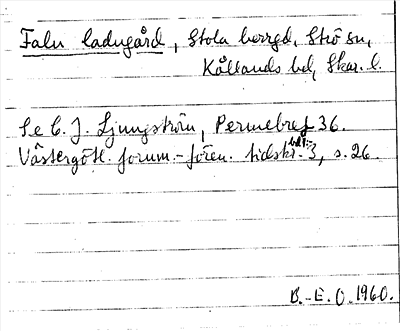 Falu ladugård, Stola herrgd, Strö sn,
Kållands hd, Skar. l.
Se C. J. Ljungström, Permebref 36.
Västergötl. fornm.-fören. tidskr. bd 1: 3, s. 26.
B.-E. O. 1960.